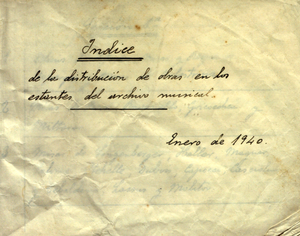 Indice
de la distribución de obras en los
estantes del archivo musical.
Enero de 1940.